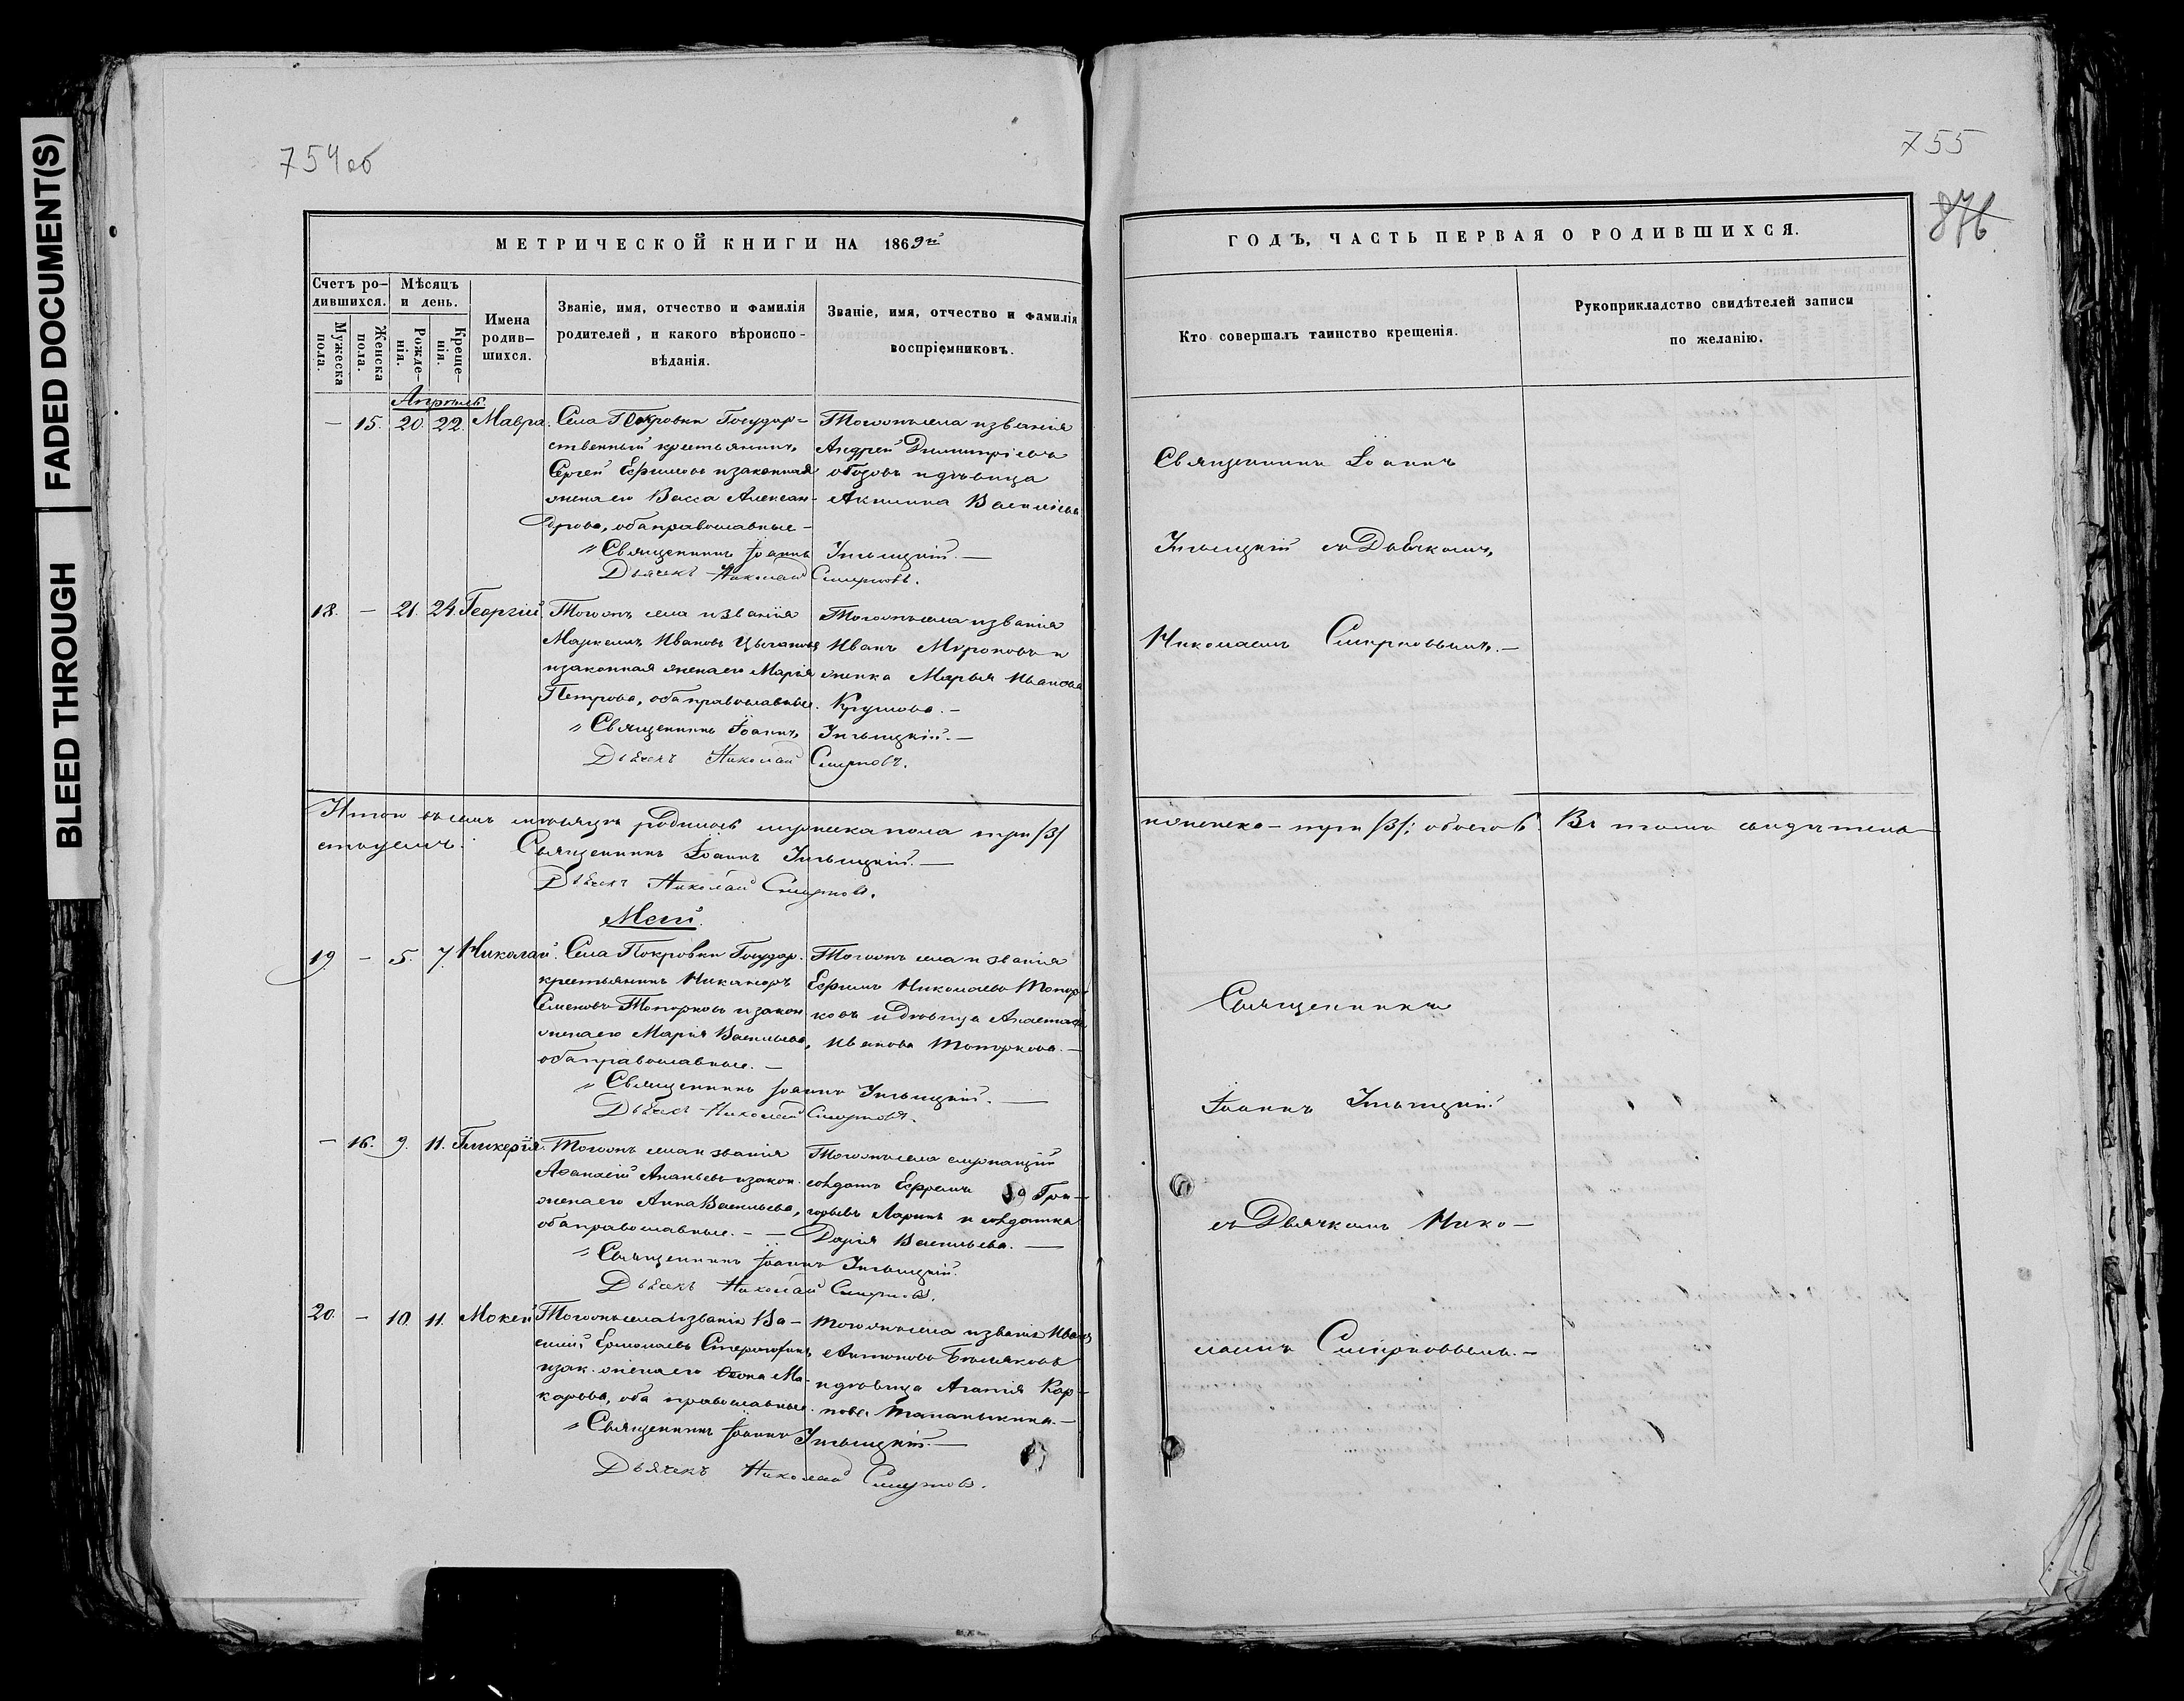 BLEED THROUGH FADED DOCUMENT(S)
754 об
МЕТРИЧЕСКОЙ КНИГИ НА 1869й
Счетъ ро-
дившихся.
Мужеска пола.
Женска пола.
Мѣсяцъ
и день.
Рожде-
нія.
Креще-
нія.
Имена
родив-
шихся.
Званіе, имя, отчество и фамилія
родителей, и какого вѣроиспо-
вѣданія.
Званіе, имя, отчество и фамилія
воспріемниковъ.
Апрѣль.
— 15. 20. 22. Мавра.
Села Покровки Государ=
ственный крестьянинъ
Сергей Ефимовъ и законная
жена его Васса Алексан-
дрова, оба православные —
Тогожъ села и званія
Андрей Димитріевъ
и дѣвица
Акилина Васильева
Священникъ Іоаннъ
Дьячекъ Николай Смирновъ.
18. — 21. 24. Георгій
Тогожъ села и званія
Маркелъ Ивановъ Цыгановъ
и законная жена его Марія
Петрова, оба православные.
Тогожъ села и званія
Иванъ Мироновъ и
женка Марья Иванова
Священникъ Іоаннъ
Дьячекъ Николай Смирновъ.
Итого въ семъ мѣсяцѣ родилось мужеска пола три /3/
Священникъ Іоаннъ
Дьячекъ Николай Смирновъ.
Май.
19. — 5. 7. Николай.
Села Покровки Государ.
крестьянинъ Никаноръ
Семеновъ Топорковъ и закон.
жена его Марія Васильева,
оба православные. —
Тогожъ села и званія
Ефимъ Николаевъ Топор-
ковъ и дѣвица Анастасія
Иванова Топоркова. —
Священникъ Іоаннъ
Дьячекъ Николай Смирновъ.
— 16. 9. 11. Гликерія.
Тогожъ села и званія
Аѳанасій Ананьевъ и закон.
жена его Анна Васильева,
оба православные. — —
Тогожъ села
солдатъ Ефремъ Гри-
горьевъ Ларинъ и солдатка
Дарія Васильева. —
Священникъ Іоаннъ
Дьячекъ Николай Смирновъ.
20. — 10. 11. Мокей
Тогожъ села и званія Ва-
силій Ермолаевъ
и зак. жена его Ѳеона Ма-
карова, оба православные.
Тогожъ села и званія Иванъ
Антоновъ
и дѣвица Агапія Кар-
пова —
Священникъ Іоаннъ
Дьячекъ Николай Смирновъ.
755
876
ГОДЪ, ЧАСТЬ ПЕРВАЯ О РОДИВШИХСЯ.
Кто совершалъ таинство крещенія.
Рукоприкладство свидѣтелей записи
по желанію.
Священникъ Іоаннъ
съ Дьячкомъ
Николаемъ Смирновымъ. —
и женска — три /3/; обоего 6. Въ томъ свидѣтель-
ствуемъ:
Священникъ
Іоаннъ
съ Дьячкомъ Нико-
лаемъ Смирновымъ. —